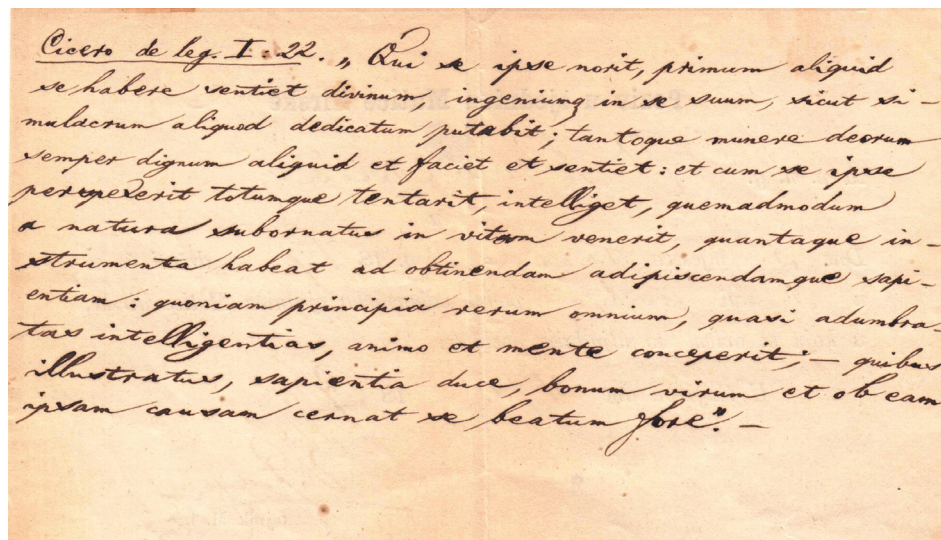 Cicero de leg. I. 22. „Qui se ipse norit, primum aliquid
se habere sentiet divinum, ingeniumq in se suum, sicut si-
mulacrum aliquod dedicatum putabit; tantoque munere deorum
semper dignum aliquid et faciet et sentiet: et cum se ipse
perspexerit totumque tentarit, intelliget, quemadmodum
a natura subornatus in vitam venerit, quantaque in-
strumenta habeat ad obtinendam adipiscendamque sapi-
entiam: quoniam principia rerum omnium, quasi adumbra-
tas intelligentias, animo et mente conceperit; — quibus
illustratus, sapientia duce, bonum virum et ob eam
ipsam causam cernat se beatum fore." —